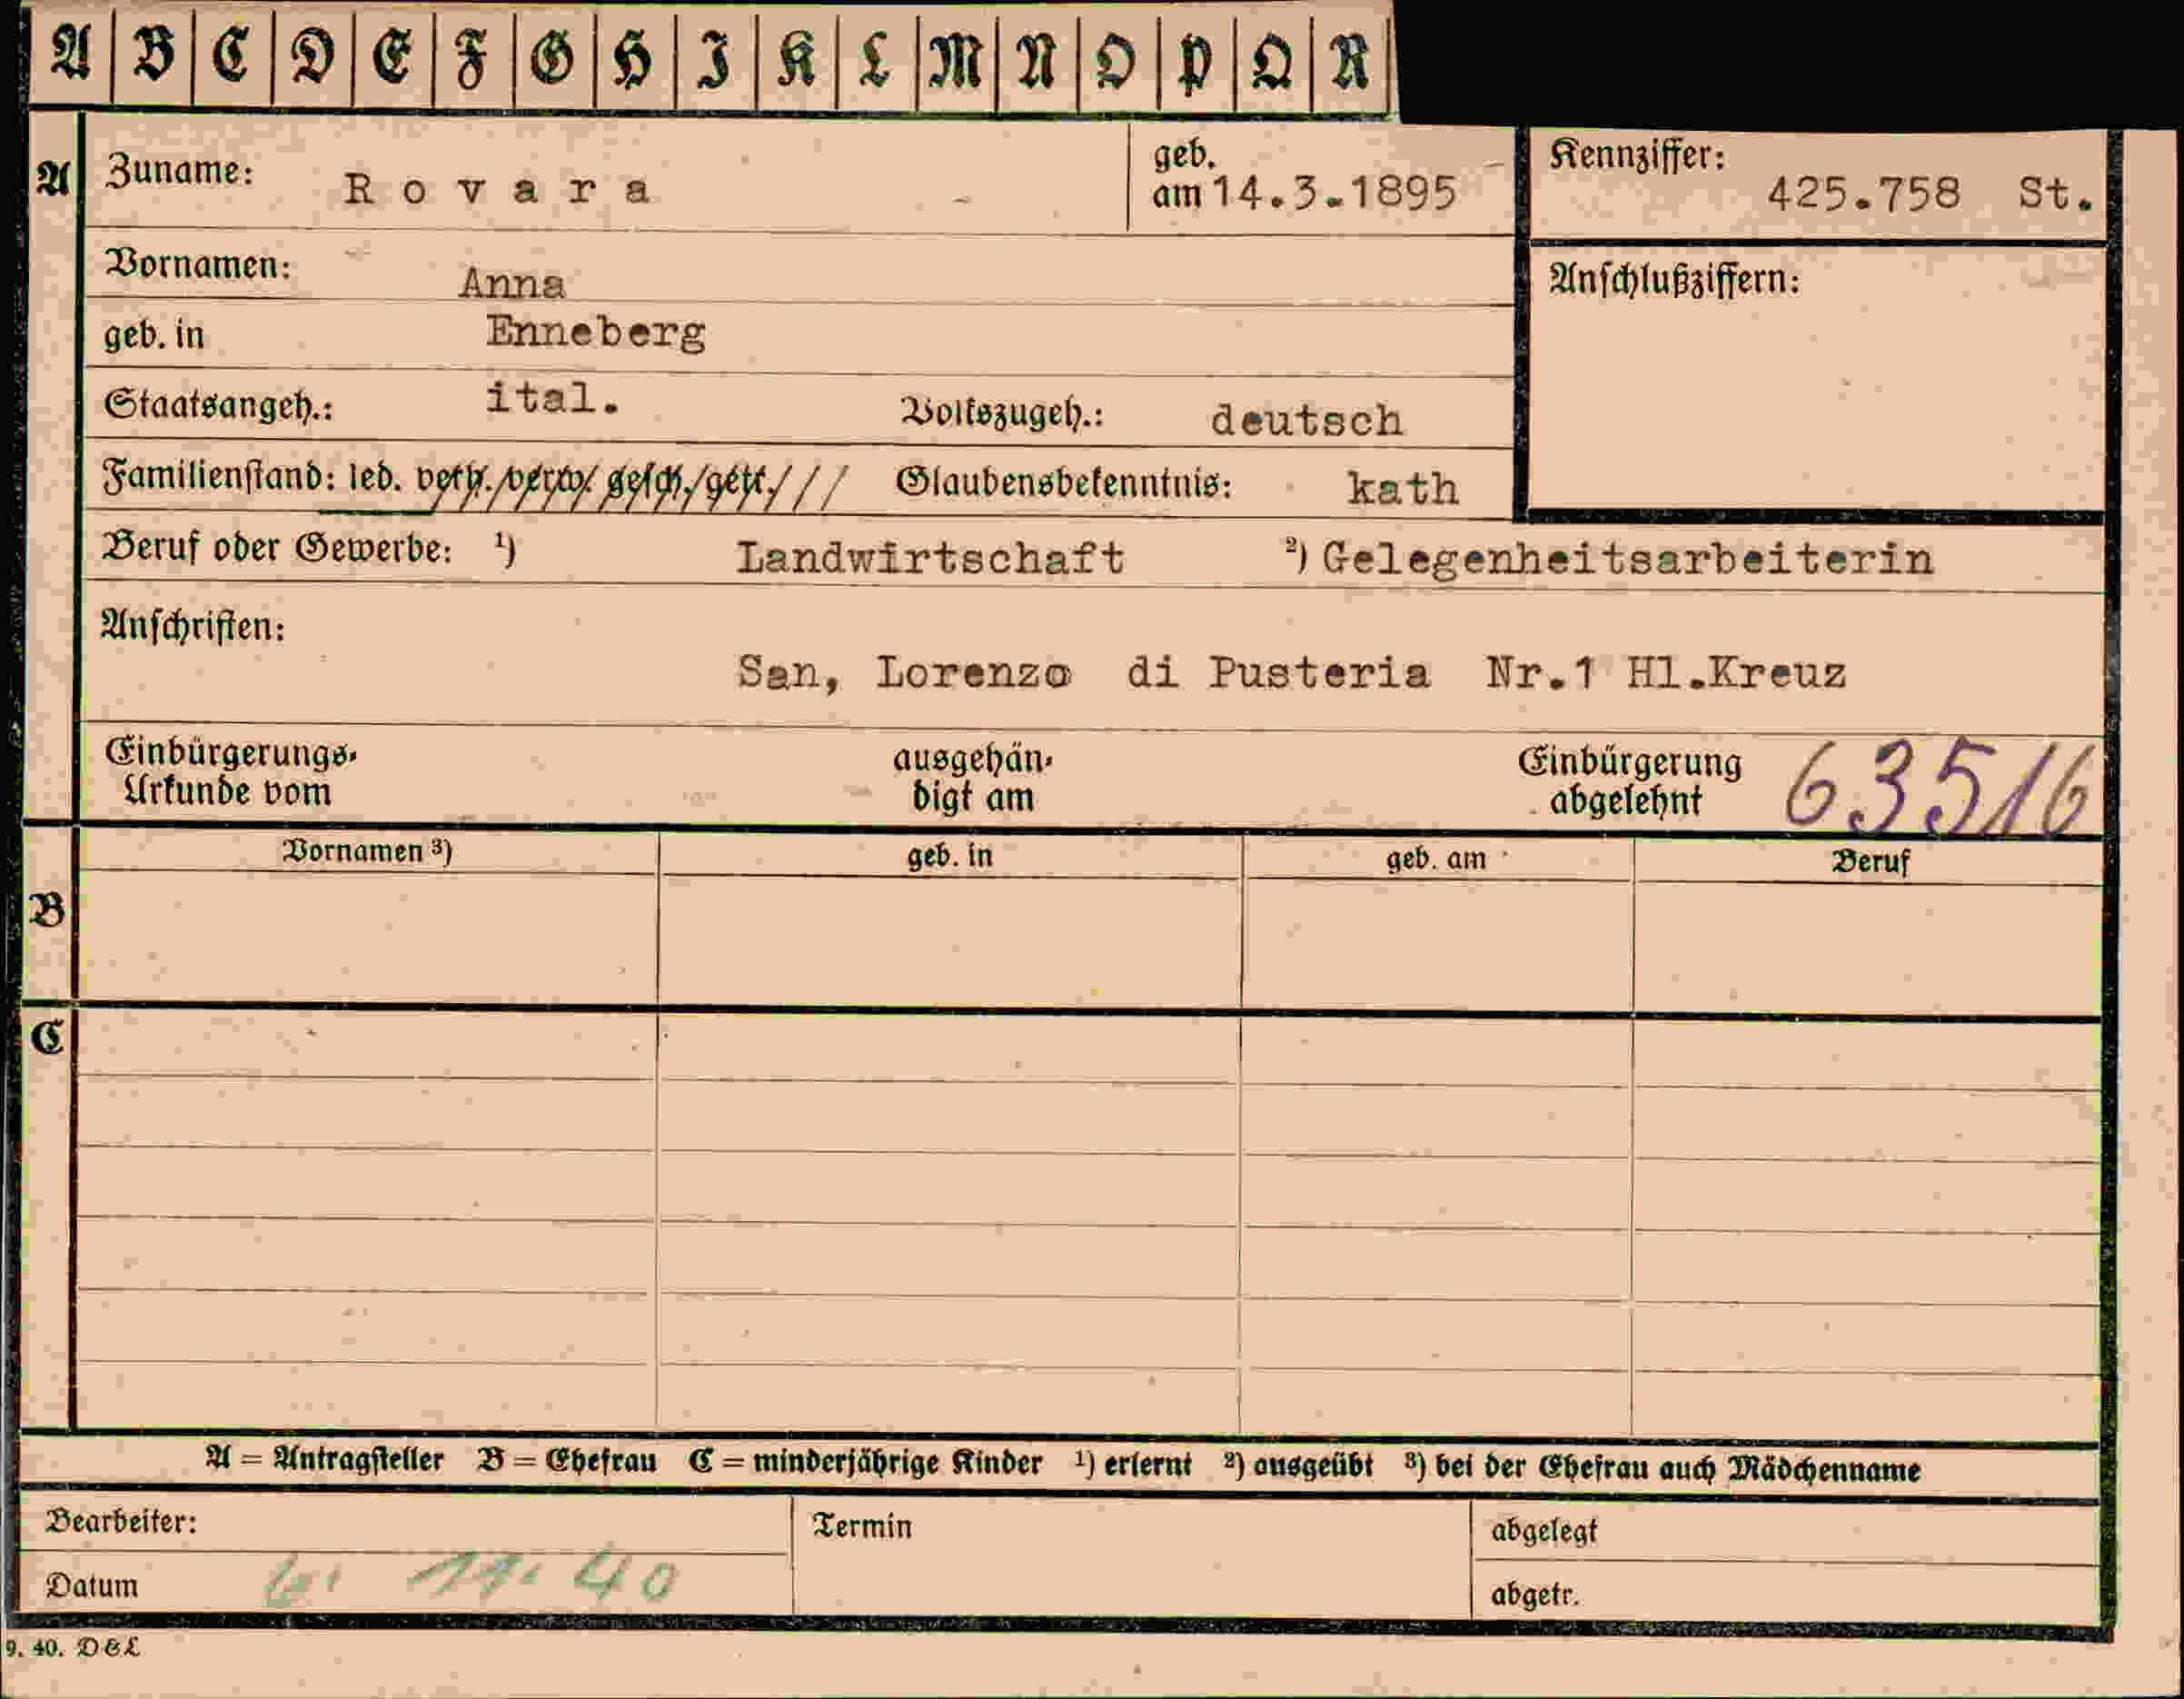 A B C D E F G H I K L M N O P Q R
A Zuname: Rovara geb. am 14.3.1895 Kennziffer: 425.758 St.
Vornamen: Anna Anschlußziffern:
geb. in Enneberg
Staatsangeh.: ital. Volkszugeh.: deutsch
Familienstand: led. verh. verw. gesch. getr./// Glaubensbekenntnis: kath
Beruf oder Gewerbe: ¹) Landwirtschaft ²) Gelegenheitsarbeiterin
Anschriften:
San, Lorenzo di Pusteria Nr.1 Hl.Kreuz
Einbürgerungs-Urkunde vom ausgehändigt am Einbürgerung abgelehnt 63516
B Vornamen ³) geb. in geb. am Beruf
C
A = Antragsteller B = Ehefrau C = minderjährige Kinder ¹) erlernt ²) ausgeübt ³) bei der Ehefrau auch Mädchenname
Bearbeiter: Termin abgelegt
Datum 11. 40 abgetr.
9. 40. D&L